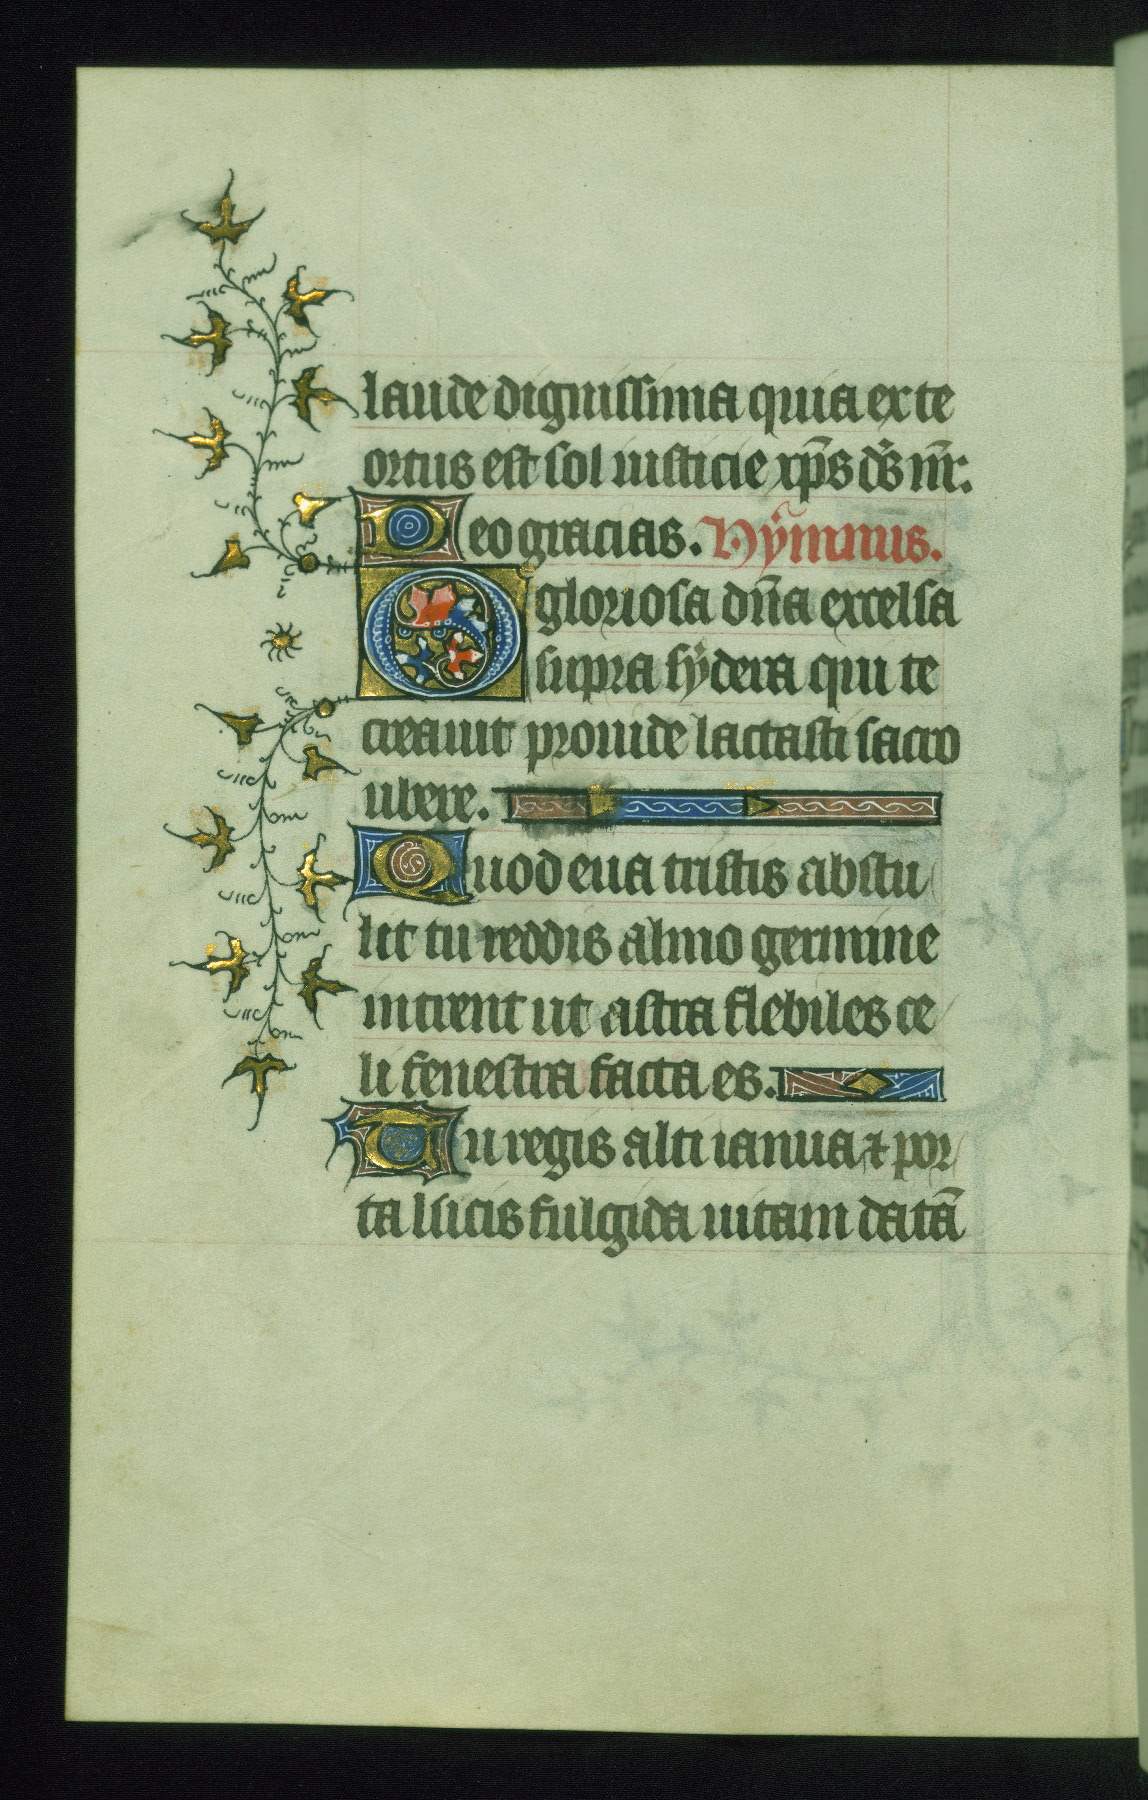 laude dignissima quia ex te
ortus est sol iusticie xp̄s ds̄ nr̄.
Deo gracias. Hẏmnus.
O gloriosa dn̄a excelsa
supra sẏdera qui te
creauit prouide lactasti sacro
ubere.
Quod eua tristis abstu
lit tu reddis almo germine
intrent ut astra flebiles ce
li fenestra facta es.
Tu regis alti ianua ⁊ por
ta lucis fulgida uitam datā